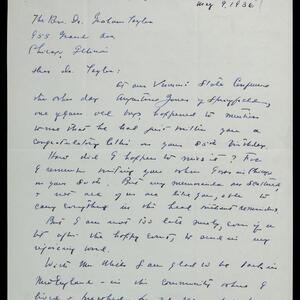 May 9, 1936
The Rev. Dr. Graham Taylor
955 Grand Ave
Chicago, Illinois
Dear Dr. Taylor:
At our Vermont State Conference
the other day Augustine Jones of Springfield,
one of your old boys happened to mention
to me that he had just written you a
congratulatory letter on your 85th birthday.
How did I happen to miss it? For
I remember writing you when I was in Chicago
on your 80th. But my memoranda are scattered
& not all of us are like you, able to
carry everything in the head without reminders.
But I am not too late surely, even if a
bit after the happy event, to send in my
rejoicing word.
With Mr. White I am glad to be back in
New England - in the community where I
lived &